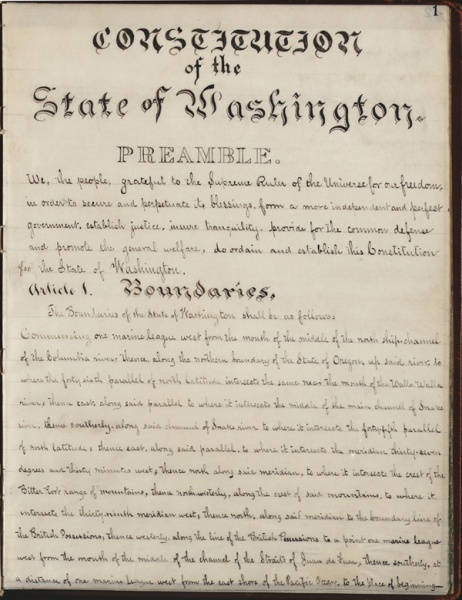 1
CONSTITUTION
of the
State of Washington.
PREAMBLE.
We, the people, grateful to the Supreme Ruler of the Universe for our freedom,
in order to secure and perpetuate its blessings, form a more independent and perfect
government, establish justice, insure tranquility, provide for the common defense
and promote the general welfare, do ordain and establish this Constitution
for the State of Washington.
Article 1. Boundaries.
The Boundaries of the State of Washington shall be as follows:
Commencing one marine league west from the mouth of the middle of the north ship-channel
of the Columbia river, thence, along the northern boundary of the State of Oregon, up said river, to
where the forty sixth parallel of north latitude intersects the same near the mouth of the Walla Walla
river, thence east, along said parallel to where it intersects the middle of the main channel of Snake
river, thence southerly, along said channel of Snake river to where it intersects the forty fifth parallel
of north latitude, thence east, along said parallel, to where it intersects the meridian thirty-seven
degrees and thirty minutes west, thence north along said meridian, to where it intersects the crest of the
Bitter Root range of mountains, thence northwesterly, along the crest of said mountains, to where it
intersects the thirty-ninth meridian west, thence north, along said meridian to the boundary line of
the British Possessions, thence westerly, along the line of the British Possessions to a point one marine league
west from the mouth of the middle of the channel of the Straits of Juan de Fuca, thence southerly, at
a distance of one marine league west from the east shore of the Pacific Ocean, to the place of beginning—